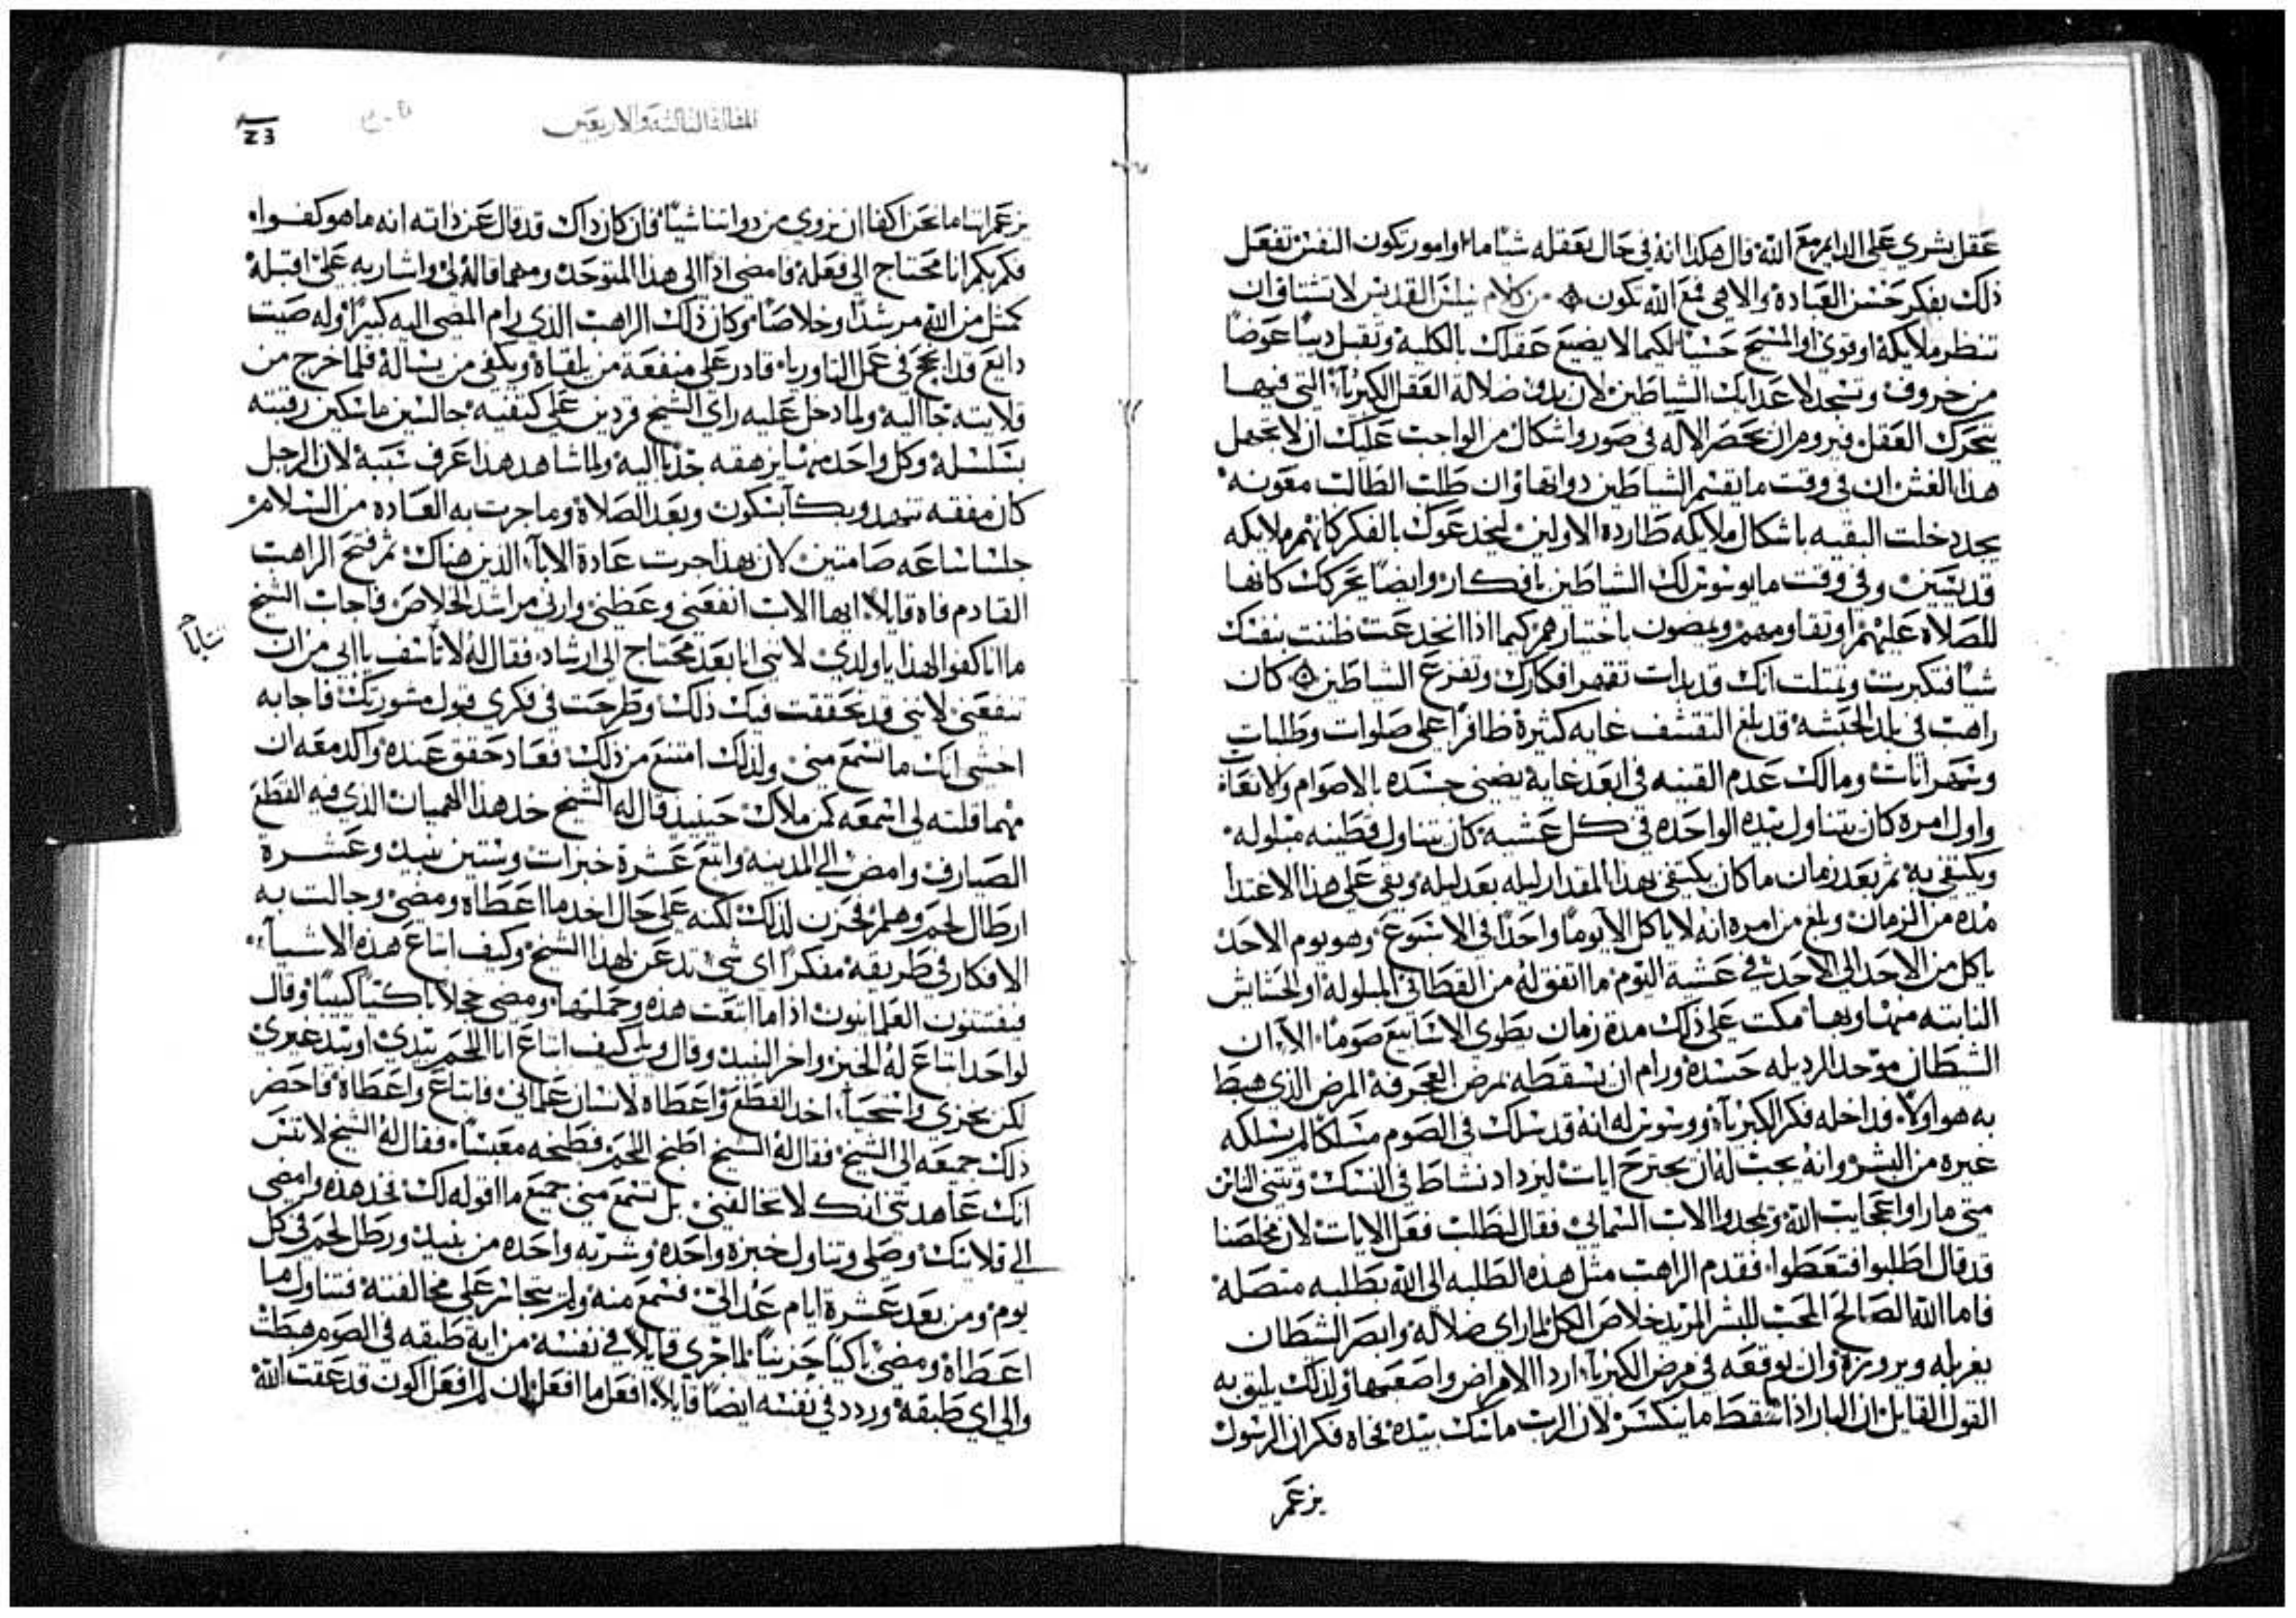 عقل بشري على الدايم مع الله قال هكذا انه في حال تعقله شيا ما او امور تكون النفس تفعل
ذلك بفكر حسن العبادة والاهي فمع الله تكون من كلام نيلس القديس لا تشتاق ان
تنظر ملايكة او قوي او المسيح حسيا لكيما لا يضيع عقلك بالكلية وتقبل ديبا عوضا
من خروف وتسجد لاعدايك الشياطين لان بدو ضلالة العقل الكبريا التي فيها
يتحرك العقل فيروم ان يحصر الاله في صور واشكال من الواجب عليك ان لا تجهل
هذا الغش ان في وقت ما يقسم الشياطين دواتها وان طلب الطالب معونه
يجدد دخلت البقيه باشكال ملايكه طارده الاولين ليخدعوك بالفكر كانهم ملايكه
قديسين وفي وقت ما يوسوس لك الشياطين بافكار وايضا تحركك كانها
للصلاة عليهم او تقاومهم ويمضون باختيارهم كيما اذا انخدعت ظننت بنفسك
شيا فتكبرت وتمثلت انك قد بدات تقهر افكارك وتفزع الشياطين كان
راهب في بلد الحبشه قد بلغ التقشف غايه كثيرة ظافرا على صلوات وطلبات
وسهرانات ومالك عدم القنيه في ابعد غاية يضني جسده بالاصوام والانقاة
واول امره كان يتناول بيده الواحده في كل عشية كان يتناول قطنيه مبلوله
ويكتفي به ثم بعد زمان ما كان يكتفي بهذا المقدار ليله بعد ليله وبقي على هذا الاعتدا
مده من الزمان وبلغ من امره انه لا ياكل الا يوما واحدا في الاسبوع وهو يوم الاحد
ياكل من الاحد الى الاحد في عشية اليوم ما اتفق له من القطاني المبلولة او الحشايش
النابته منها وبها مكت على ذلك مدة زمان يطوي الاسابيع صوما الا ان
الشيطان موجد الرديله حسده ورام ان يسقطه بمرض العجرفة المرض الذي هبط
به هو اولا فداخله فكر الكبريآء ووسوس له انه قد سلك في الصوم مسلكا لم يسلكه
غيره من البشر وانه يجب له ان يجترح ايات ليزداد نشاط في النسك وتيتني الناس
متي ما راوا عجايب الله وتمجدوا الاب السماني فقال لنطلب فعل الايات لان مخلصنا
قد قال اطلبوا فتعطوا فقدم الراهب مثل هذه الطلبه الى الله بطلبه متصله
فاما الله الصالح المحب للبشر المريد خلاص الكل لما راي ضلاله وابصر الشيطان
يغربله ويروزه وان يوقعه في مرض الكبريا اردا الامراض واصعبها ولذلك يليق به
القول القايل ان البار اذا سقط ما ينكسر لان الرب ماسك بيده فجاه فكر ان الرسول
يزعم
المقالة الثالثة والاربعين
23
يزعم اننا ما نحن اكفا ان نروي من دواتنا شيا فان كان ذاك قد قال عن ذاته انه ما هو كفوا
فكم بكم انا محتاج الى فعله فامضي اذا الى هذا المتوحد ومهما قاله لي واشار به علي اقبله
كمثل من الله مرشدا وخلاصا وكان ذلك الراهب الذي رام المضي اليه كبيرا وله صيت
دايع قد انجح في عمل التاوريا قادر على منفعة من يلقاه ويكفي من يساله فلما خرج من
قلايته جا اليه ولما دخل عليه راي الشيخ قردين على كتفيه جالسين ماسكين رقبته
بسلسلة وكل واحد منهما يزهقه جذبا اليه ولما شاهد هذا عرف سببه لان الرجل
كان مفقه تنهد وبكآ بسكون وبعد الصلاة وما جرت به العاده من السلام
جلسا ساعه صامتين لان بهذا جرت عادة الاباء الذين هناك ثم فتح الراهب
القادم فاه قايلا ايها الاب انفعني وعظني وارني مراشد الخلاص فاجاب الشيخ
ما انا كفوا لهذا يا ولدي لانني انا بعد محتاج الى ارشاد فقال له لا تاسف يا ابي من ان
تنفعني لانني قد تحققت فيك ذلك وطرحت في فكري قبول مشورتك فاجابه
اخشي انك ما تسمع مني ولذلك امتنع من ذلك فعاد حقق عنده واكد معه ان
مهما قلته لي اسمعه كمن ملاك حينيذ قال له الشيخ خذ هذا الهميان الذي فيه القطع
الصيارف وامض الى المدينه وابتع عشرة خبزات وستين نبيذ وعشرة
ارطال لحم وهلم فحزن لذلك لكنه على حال اخذ ما اعطاه ومضى وجالت به
الافكار في طريقه مفكرا اي شي تدعن لهذا الشيخ وكيف ابتاع هذه الاشيآء
فيفتتنون العلمانيون اذا ما ابتعت هذه وحملتها ومضى خجلا باكتيا كييبا وقال
لواحد ابتاع له الخبز واخر النبيذ وقال ويلي كيف ابتاع انا اللحم بيدي او بيد غيري
لكن بخزي واستحيا اخذ القطع واعطاه لانسان علماني فابتاع واعطاه فاحضر
ذلك جميعه الى الشيخ فقال له الشيخ اطبخ اللحم فطبخه معبسا فقال له الشيخ لا تنس
انك عاهدتني انك لا تخالفني بل تسمع مني جميع ما اقوله لك فخذ هذه وامضي
الى قلايتك وصلي وتناول خبزه واحده وشربه واحده من نبيذ ورطل لحم في كل
يوم ومن بعد عشرة ايام عد الي فسمع منه ولم يتجاسر على مخالفته فتناول ما
اعطاه ومضى باكيا حزينا لما جري قايلا في نفسه من اية طبقه في الصوم هبطت
والى اي طبقة وردد في نفسه ايضا قايلا افعل ما افعل ان لم افعل اكون قد عققت الله